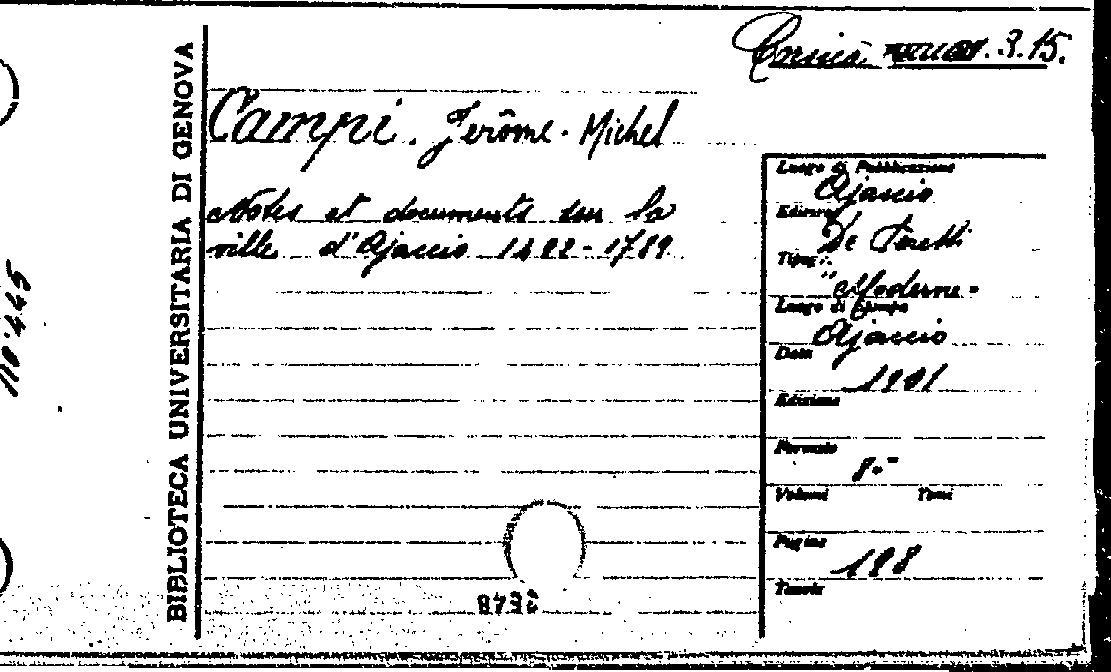 Corsica 3.15.
Campi. Jerôme-Michel
Notes et documents sur la
ville d'Ajaccio 1492-1789
BIBLIOTECA UNIVERSITARIA DI GENOVA
110.445
Luogo di Pubblicazione
Ajaccio
Editore
De
Tipog.
"Moderne"
Luogo di Stampa
Ajaccio
Data
1901
Edizione
Formato
8°
Volumi Tomi
Pagine
198
Tavole